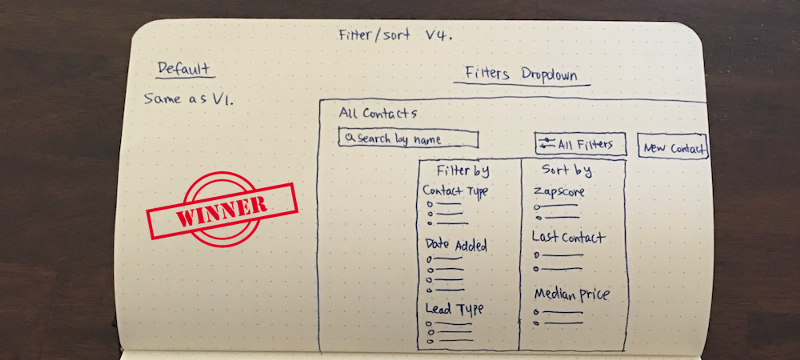 Filter/sort V4.
Default
Same as V1.
WINNER
Filters Dropdown
All Contacts
Search by name
All Filters
New Contact
Filter by
Contact Type
Date Added
Lead Type
Sort by
Zapscore
Last Contact
Median Price